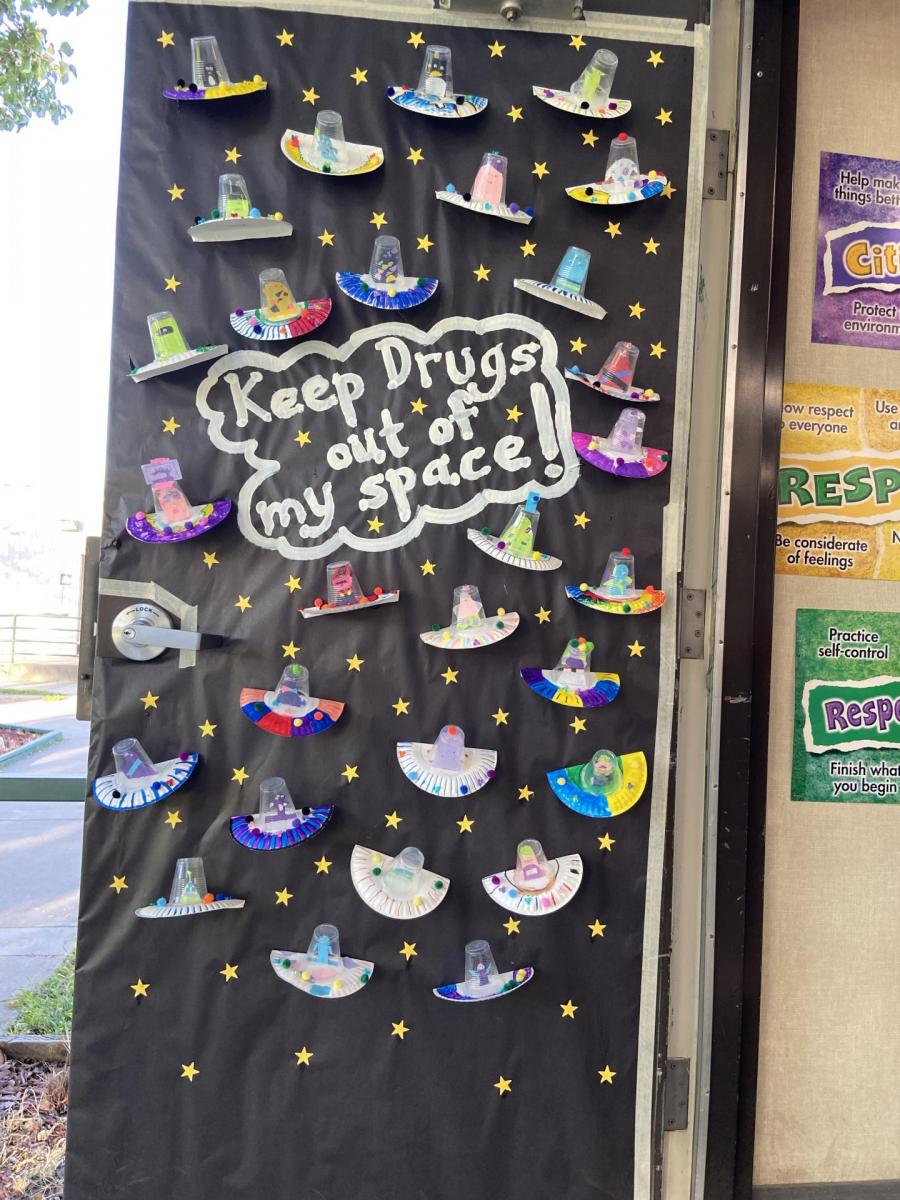 Keep Drugs
out of
my space!
LOCK
Help make
things
Protect
Respect
everyone
Use
RESP
Be considerate
of feelings
Practice
self-control
Finish what
you begin